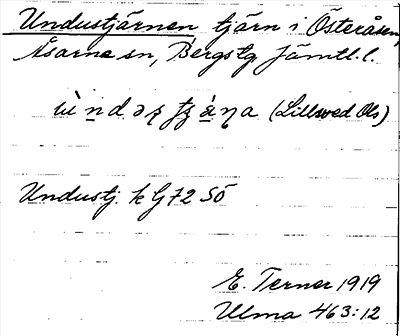 Undustjärnen tjärn i Österåsen,
Åsarne sn, Bergs tg Jämtl. l.
(Lillswed Ols)
Undustj. k G72 SÖ
E. Terner 1919
Ulma 463:12